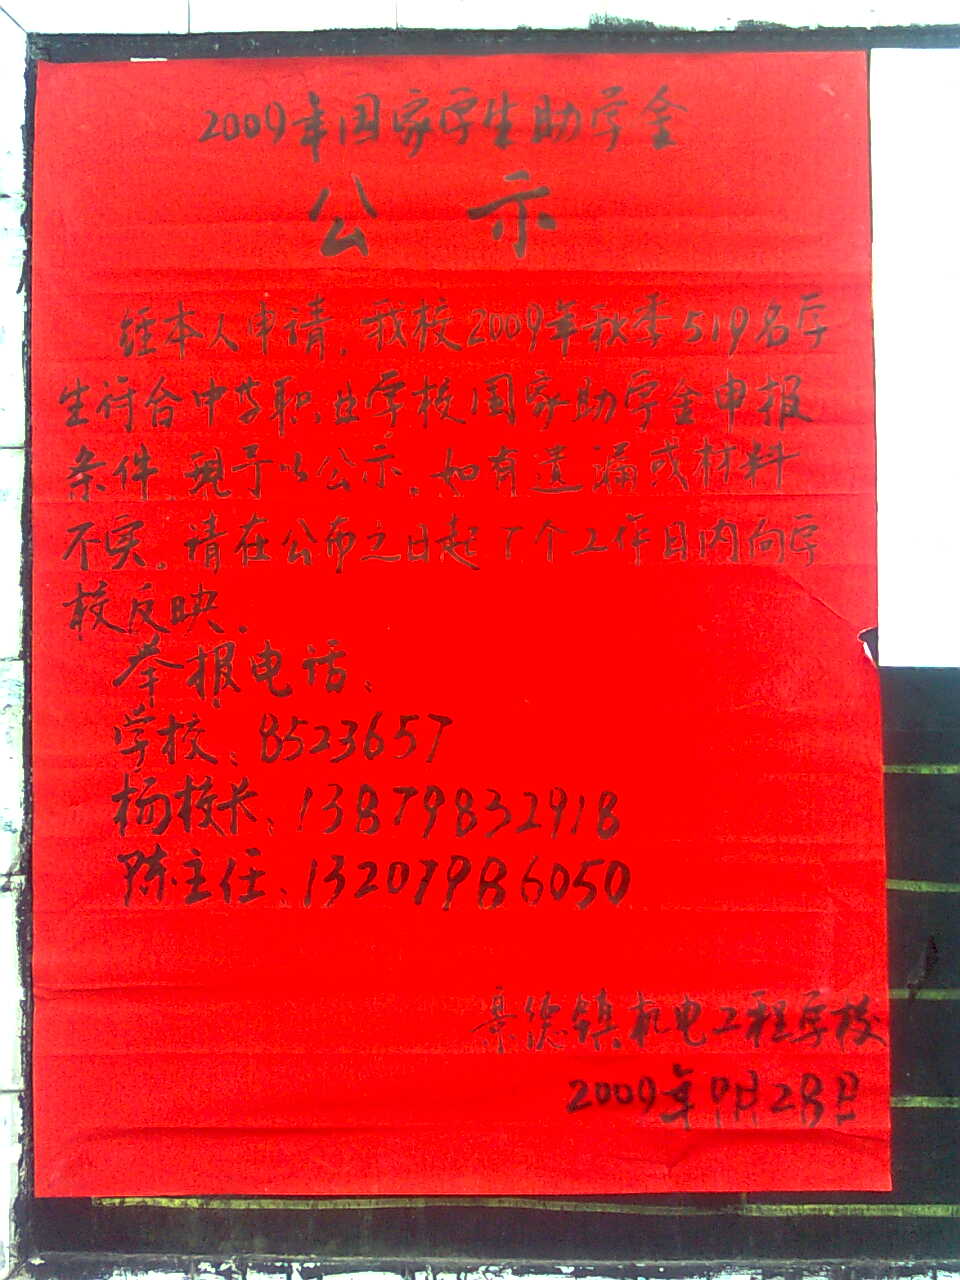 2009年国家学生助学金
公示
经本人申请，我校2009年秋季519名学
生符合中等职业学校国家助学金申报
条件，现予以公示。如有遗漏或材料
不实。请在公布之日起 个工作日内向学
校反映。
举报电话：
学校：8523657
杨校长：13879832918
陈主任：13207986050
景德镇机电工程学校
2009年9月28日